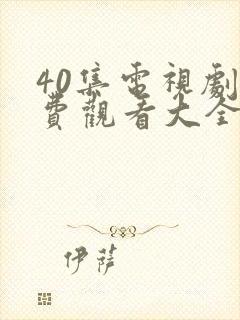 40集電視劇
費觀看大全
伊薩